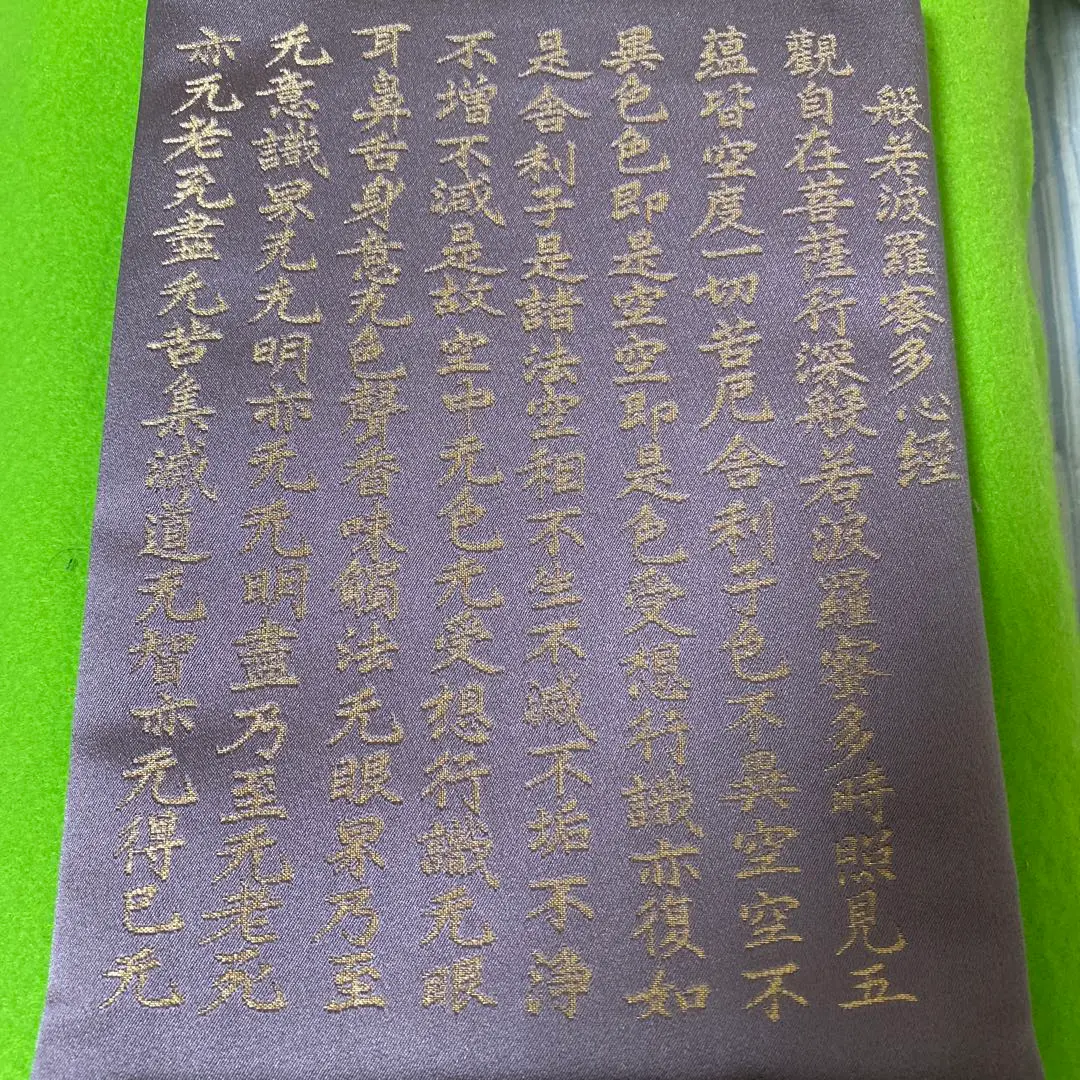 般若波羅蜜多心經
觀自在菩薩行深般若波羅蜜多時照見五
蘊皆空度一切苦厄舍利子色不異空空不
異色色即是空空即是色受想行識亦復如
是舍利子是諸法空相不生不滅不垢不淨
不增不減是故空中无色无受想行識无眼
耳鼻舌身意无色聲香味觸法无眼界乃至
无意識界无无明亦无无明盡乃至无老死
亦无老死盡无苦集滅道无智亦无得已无